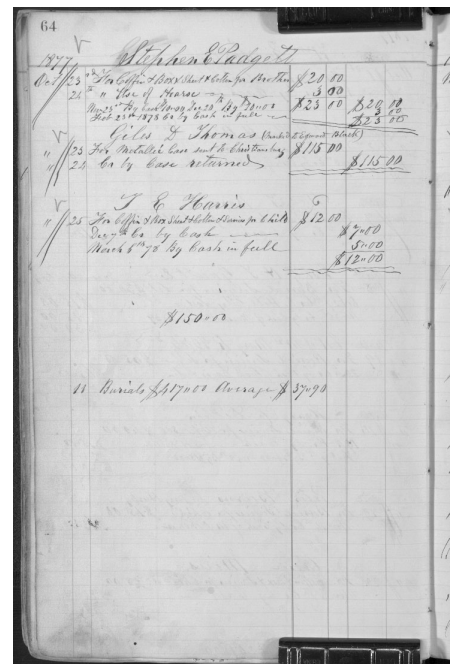 64
1877 Stephen E Padgett
Oct 23 For Coffin & Box & Shirt & Collar for Brother $20 00
24 " Use of Hearse 3 00
Nov 23rd By Cash $10.00 Dec 28th By $10.00 $23 00 $20 00
Feb 23rd 1878 Cr by Cash in full 3 00
$23 00
Giles D Thomas
" 23 For Metallic Case sent to Christiansburg $115 00
" 24 Cr by Case returned $115 00
T E Harris
" 25 For Coffin & Box Shirt & Collar & Service for Child $12 00
Dec 7th Cr by Cash $7.00
March 6th 78 By Cash in full 5.00
$12.00
$150.00
11 Burials $417.00 Average $37.90